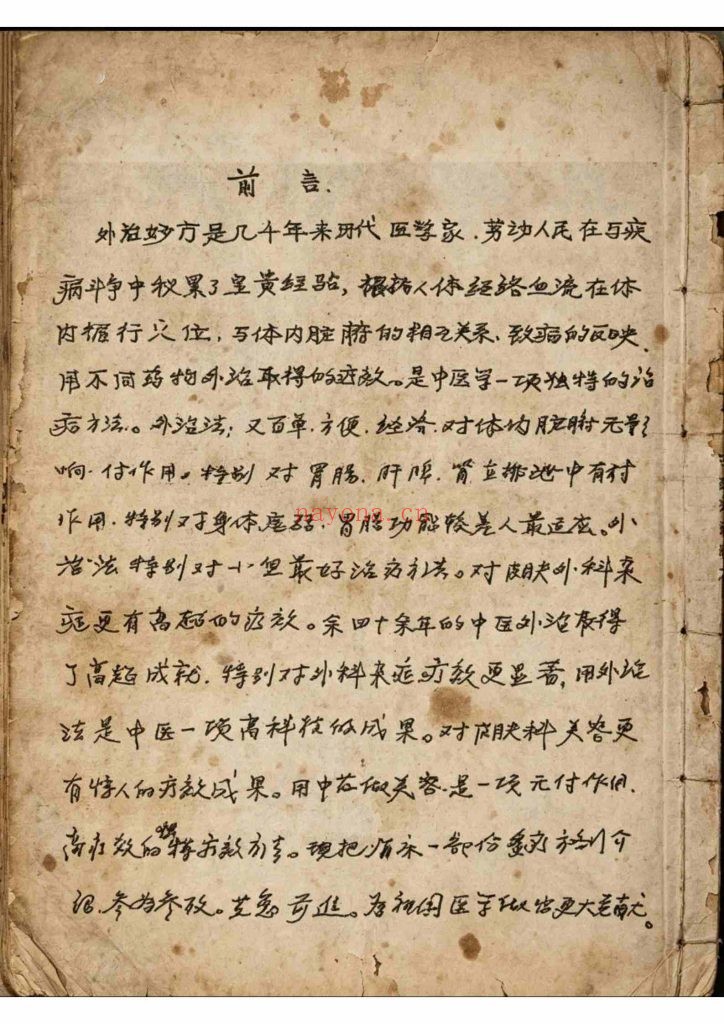 前言.
外治妙方是几千年来历代医学家.劳动人民在与疾
病斗争中积累了宝贵经验,根据人体经络血流在体
内循行穴位,与体内脏腑的相互关系.致病的反映.
用不同药物外治取得的疗效。是中医学一项独特的治
病方法。外治法;又简单.方便.经济.对体内脏腑无影
响.付作用。特别对胃肠.肝脾.肾立排泄中有付
作用.特别对身体虚弱.胃肠功能较差人最适应。外
治法特别对小但最好治疗方法。对皮肤外科杂
症更有高超的疗效。余四十余年的中医外治取得
了高超成就.特别对外科杂症疗效更显著,用外治
法是中医一项高科技的成果。对皮肤科美容更
有惊人的疗效成果。用中药做美容是一项无付作用.
高有效的特疗效方法。现把临床一部份重方方剂介
绍.参为参改。艾急前进。为祖国医学做出更大贡献。
nayona.cn